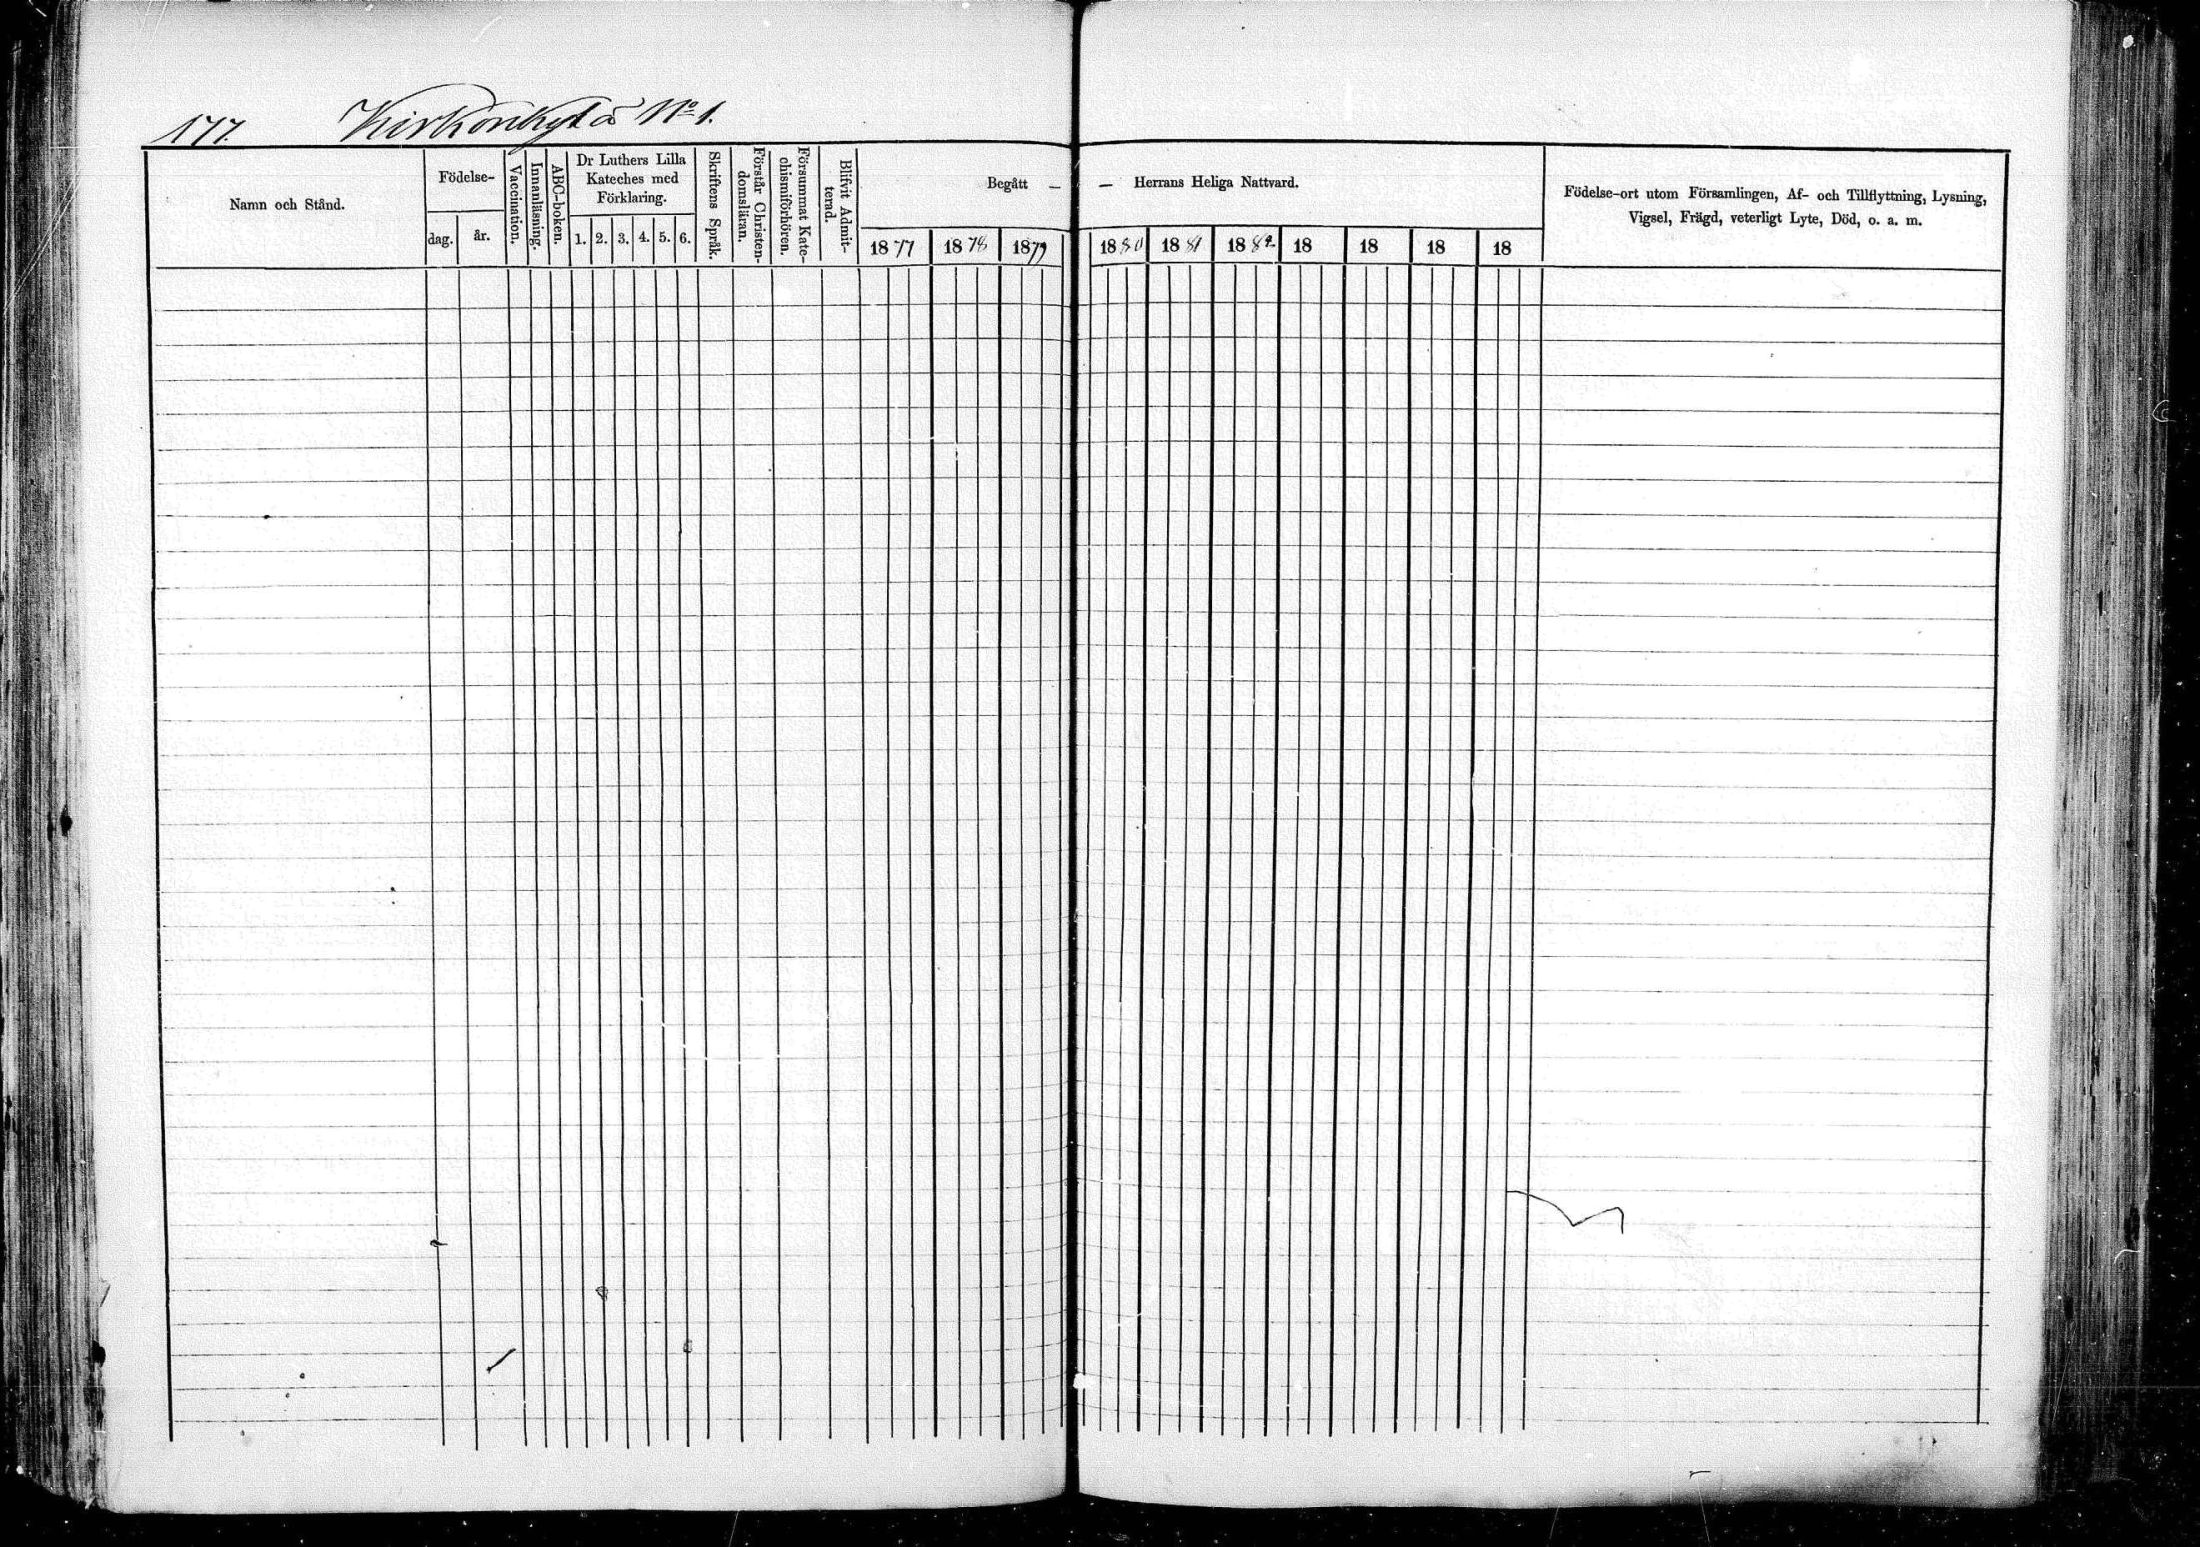 177. Kirkonkylä No 1.
Namn och Stånd.
Födelse-
dag.
år.
Vaccination.
Innanläsning.
ABC-boken.
Dr Luthers Lilla
Kateches med
Förklaring.
1. 2. 3. 4. 5. 6.
Skriftens Språk.
Förstår Christen-
domsläran.
Försummat Kate-
chismiförhören.
Blifvit Admit-
terad.
Begått — — Herrans Heliga Nattvard.
1877 1878 1879 1880 1881 1882 18 18 18 18
Födelse-ort utom Församlingen, Af- och Tillflyttning, Lysning,
Vigsel, Frägd, veterligt Lyte, Död, o. a. m.